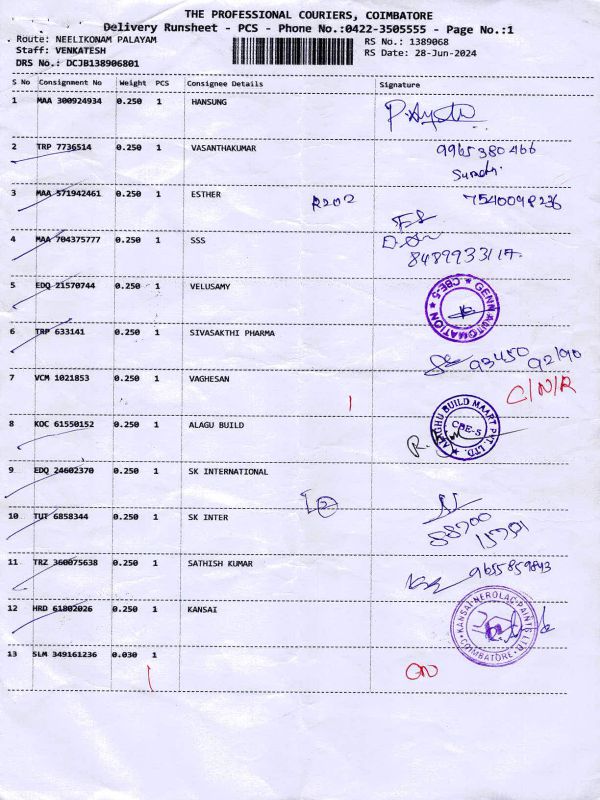 THE PROFESSIONAL COURIERS, COIMBATORE
Delivery Runsheet - PCS - Phone No.:0422-3505555 - Page No.:1
Route: NEELIKONAM PALAYAM
RS No.: 1389068
Staff: VENKATESH
RS Date: 28-Jun-2024
DRS No.: DCJB138906801
S No Consignment No Weight PCS Consignee Details Signature
1 MAA 300924934 0.250 1 HANSUNG
2 TRP 7736514 0.250 1 VASANTHAKUMAR 9965380466
3 MAA 571942461 0.250 1 ESTHER R202 7540098236
4 MAA 704375777 0.250 1 SSS
5 EDQ 21570744 0.250 1 VELUSAMY GENN AUTOMATION CBE-5
6 TRP 633141 0.250 1 SIVASAKTHI PHARMA 93450 92190
7 VCM 1021853 0.250 1 VAGHESAN C/N/R
8 KOC 61550152 0.250 1 ALAGU BUILD BUILD MAART PVT. LTD. CBE-5
9 EDQ 24602370 0.250 1 SK INTERNATIONAL
10 TUT 6858344 0.250 1 SK INTER 88700
11 TRZ 360075638 0.250 1 SATHISH KUMAR 9655859843
12 HRD 61802026 0.250 1 KANSAI KANSAI NEROLAC PAINTS LTD. COIMBATORE
13 SLM 349161236 0.030 1